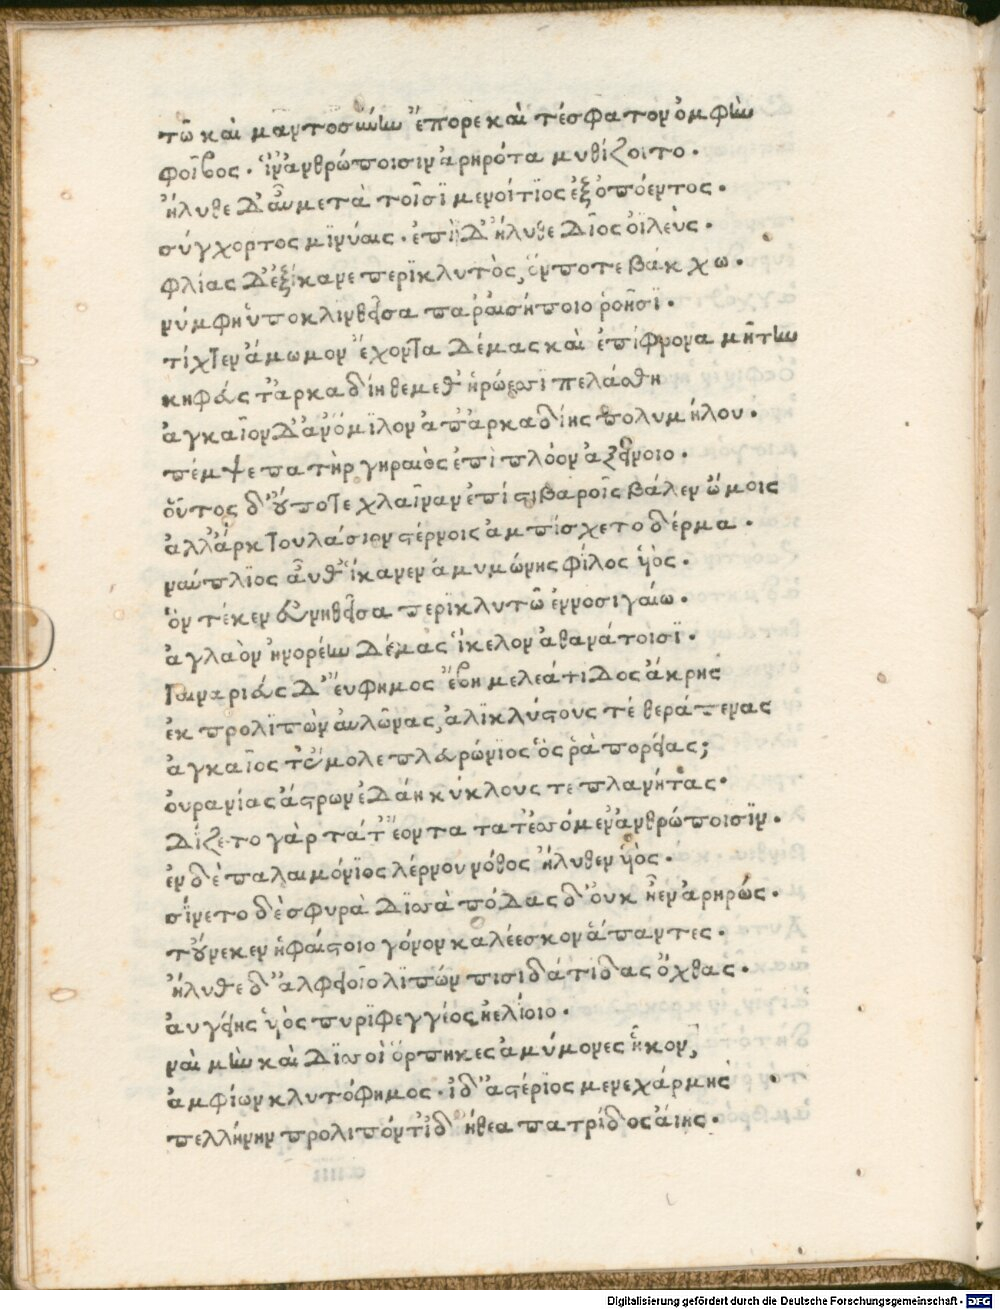 τῷ καὶ μαντοσύνην ἔπορε καὶ τέσφατον ὀμφὴν
φοῖβος. ἵν' ἀνθρώποισιν ἀρηρότα μυθίζοιτο.
ἤλυθε Δ' αὖ μετὰ τοῖσϊ μενοίτϊος ἐξ ὀπόεντος.
σύγχορτος μϊνύαις. ἐπὶ Δ' ἤλυθε Δῖος ὀϊλεὺς.
φλίας Δ' ἐξίκανε περϊκλυτὸς, ὅν ποτε βάκχω.
νύμφη ὑποκλϊνθεῖσα παρ' αἰσήποιο ῥοῆσϊ.
τίκτεν ἄμωμον ἔχοντα Δέμας καὶ ἐπίφρονα μῆτιν
κηφεὺς τ' ἀρκαδίηθε μεθ' ἡρώεσσϊ πελάσθη
ἀγκαῖον Δ' ἀν' ὅμϊλον ἀπ' ἀρκαδίης πολυμήλου.
πέμψε πατὴρ γηραιὸς ἐπὶ πλόον ἀξείνοιο.
οὗτος δ' οὔποτε χλαῖναν ἐπὶ στιβαροῖς βάλεν ὤμοις
ἀλλ' ἄρκτου λάσιον στέρνοις ἀμπίσχετο δέρμα.
ναύπλϊος αὖθ' ἵκανεν ἀμυμώνης φΐλος ὑιός.
ὃν τέκεν εὐνηθεῖσα περϊκλυτῷ ἐννοσιγαίῳ.
ἀγλαὸν ἠνορέην Δέμας ἴκελον ἀθανάτοισϊ.
Ταιναριεὺς Δ' εὔφημος ἔβη μελεάτιδος ἄκρης
ἐκπρολϊπὼν αὐλῶνας, ἁλϊκλύστους τὲ θεράπενας
ἀγκαῖος τ' ἔμολε πλευρώνϊος ὅς ῥὰ πορείας;
οὐρανίας ἄστρων ἐΔάη κύκλους τε πλανήτας.
Δίζετο γὰρ τά τ' ἔοντα τα τ' ἐσσόμεν' ἀνθρώποισϊν.
ἐν δὲ παλαιμόνϊος λέρνου νόθος ἤλυθεν ὑιός.
σίνετο δὲ σφυρὰ Δϊσσὰ πόδας δ' οὐκ ἦεν ἀρηρώς.
τοὔνεκεν ἡφαίστοιο γόνον καλέεσκον ἅπαντες.
ἤλυθε δ' ἀλφειοῖο λϊπὼν πισιδάτιδας ὄχθας.
αυγείης ὑιὸς πυρϊφεγγέος ἠελίοιο.
ναὶ μὴν καὶ Δϊσσοὶ ὅρπηκες ἀμύμονες ἧκον,
ἀμφίων κλυτόφημος. ἰδ' ἀστέριος μενεχάρμης
πελλήνην προλιπόντ' ἰδ' ἤθεα πατρίδος αἴης.